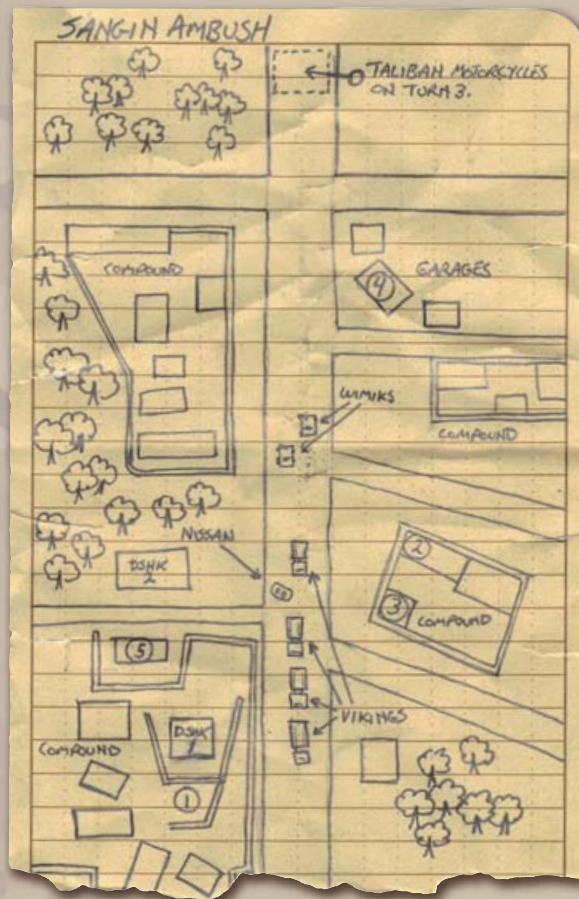 SANGIN AMBUSH
TALIBAN MOTORCYCLES
ON TURN 3.
COMPOUND
GARAGES
4
WIMIKS
COMPOUND
NISSAN
DSHK
2
2
3
COMPOUND
5
DSHK
1
VIKINGS
COMPOUND
1